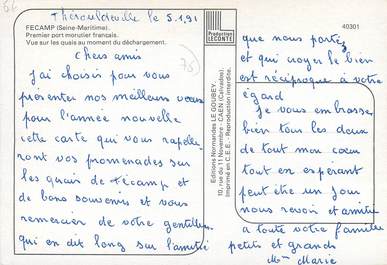 Thérouldeville le 5.1.91
FECAMP (Seine-Maritime).
Premier port morutier français.
Vue sur les quais au moment du déchargement.
Chers amis
J'ai choisi pour vous
présenter nos meilleurs vœux
pour l'année nouvelle
cette carte qui vous rappelle
ront vos promenades sur
les quais de Fécamp et
de bons souvenirs et vous
remercier de votre gentillesse
qui en dit long sur l'amitié
Production
LECONTE
40301
Editions Normandes LE GOUBEY
10, rue du 11 Novembre - CAEN (Calvados)
Imprimé en C.E.E. - Reproduction interdite.
que nous portez
et qui croyez le bien
est réciproque à votre
égard
Je vous embrasse
bien tous les deux
de tout mon cœur
tout en espérant
peut être un jour
nous revoir et amitié
a toute votre famille
petits et grands
Mme Marie